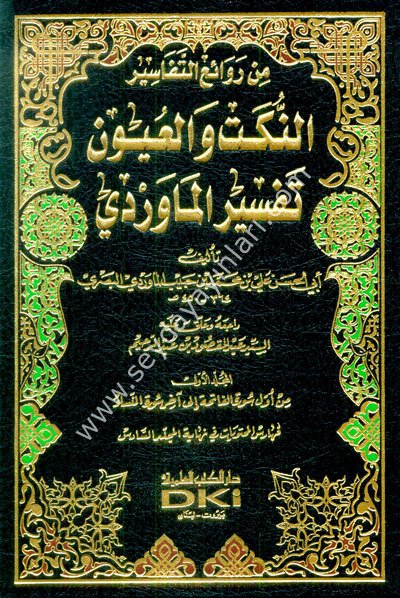 من روائع التفاسير
النكت والعيون
تفسير الماوردي
تأليف
أبي الحسن علي بن محمد بن حبيب الماوردي البصري
٣٦٤ - ٤٥٠ هـ
راجعه وعلق
السيد بن عبد المقصود بن عبد الرحيم
المجلد الأول
من أول سورة الفاتحة إلى آخر سورة النساء
فهارس المحتويات في نهاية المجلد السادس
دار الكتب العلمية
DKi
بيروت - لبنان
www.seydayayinlari.com